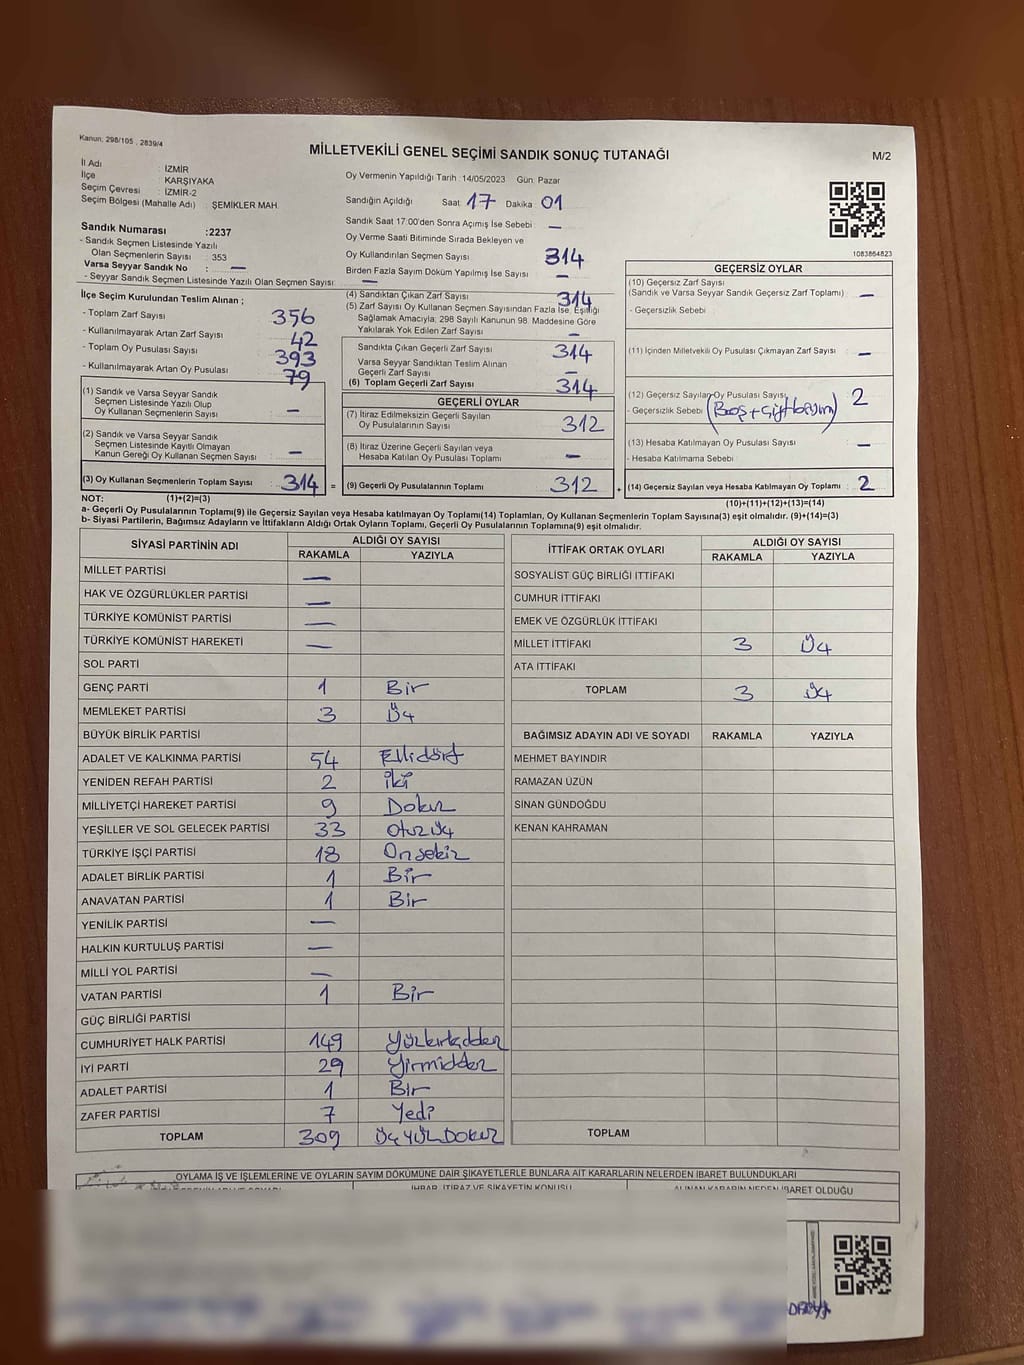 Kanun: 298/105 , 2839/4
MİLLETVEKİLİ GENEL SEÇİMİ SANDIK SONUÇ TUTANAĞI
M/2
İl Adı : İZMİR
İlçe : KARŞIYAKA
Seçim Çevresi : İZMİR-2
Seçim Bölgesi (Mahalle Adı) : ŞEMİKLER MAH.
Sandık Numarası :2237
- Sandık Seçmen Listesinde Yazılı
Olan Seçmenlerin Sayısı : 353
Varsa Seyyar Sandık No : —
- Seyyar Sandık Seçmen Listesinde Yazılı Olan Seçmen Sayısı : —
Oy Vermenin Yapıldığı Tarih :14/05/2023 Gün: Pazar
Sandığın Açıldığı Saat 17 Dakika 01
Sandık Saat 17:00'den Sonra Açımış İse Sebebi —
Oy Verme Saati Bitiminde Sırada Bekleyen ve
Oy Kullandırılan Seçmen Sayısı 314
Birden Fazla Sayım Döküm Yapılmış İse Sayısı —
1083864823
İlçe Seçim Kurulundan Teslim Alınan ;
- Toplam Zarf Sayısı 356
- Kullanılmayarak Artan Zarf Sayısı 42
- Toplam Oy Pusulası Sayısı 393
- Kullanılmayarak Artan Oy Pusulası 79
(1) Sandık ve Varsa Seyyar Sandık
Seçmen Listesinde Yazılı Olup
Oy Kullanan Seçmenlerin Sayısı —
(2) Sandık ve Varsa Seyyar Sandık
Seçmen Listesinde Kayıtlı Olmayan
Kanun Gereği Oy Kullanan Seçmen Sayısı —
(3) Oy Kullanan Seçmenlerin Toplam Sayısı 314 =
(4) Sandıktan Çıkan Zarf Sayısı 314
(5) Zarf Sayısı Oy Kullanan Seçmen Sayısından Fazla İse, Eşitliği
Sağlamak Amacıyla; 298 Sayılı Kanunun 98. Maddesine Göre
Yakılarak Yok Edilen Zarf Sayısı —
Sandıkta Çıkan Geçerli Zarf Sayısı 314
Varsa Seyyar Sandıktan Teslim Alınan
Geçerli Zarf Sayısı —
(6) Toplam Geçerli Zarf Sayısı 314
GEÇERLİ OYLAR
(7) İtiraz Edilmeksizin Geçerli Sayılan
Oy Pusulalarının Sayısı 312
(8) İtiraz Üzerine Geçerli Sayılan veya
Hesaba Katılan Oy Pusulası Toplamı —
(9) Geçerli Oy Pusulalarının Toplamı 312 +
GEÇERSİZ OYLAR
(10) Geçersiz Zarf Sayısı
(Sandık ve Varsa Seyyar Sandık Geçersiz Zarf Toplamı) —
- Geçersizlik Sebebi
(11) İçinden Milletvekili Oy Pusulası Çıkmayan Zarf Sayısı —
(12) Geçersiz Sayılan Oy Pusulası Sayısı 2
- Geçersizlik Sebebi (Boş + Çift basım)
(13) Hesaba Katılmayan Oy Pusulası Sayısı —
- Hesaba Katılmama Sebebi
(14) Geçersiz Sayılan veya Hesaba Katılmayan Oy Toplamı 2
NOT: (1)+(2)=(3) (10)+(11)+(12)+(13)=(14)
a- Geçerli Oy Pusulalarının Toplamı(9) ile Geçersiz Sayılan veya Hesaba katılmayan Oy Toplamı(14) Toplamları, Oy Kullanan Seçmenlerin Toplam Sayısına(3) eşit olmalıdır. (9)+(14)=(3)
b- Siyasi Partilerin, Bağımsız Adayların ve İttifakların Aldığı Ortak Oyların Toplamı, Geçerli Oy Pusulalarının Toplamına(9) eşit olmalıdır.
SİYASİ PARTİNİN ADI ALDIĞI OY SAYISI
RAKAMLA YAZIYLA
MİLLET PARTİSİ —
HAK VE ÖZGÜRLÜKLER PARTİSİ —
TÜRKİYE KOMÜNİST PARTİSİ —
TÜRKİYE KOMÜNİST HAREKETİ —
SOL PARTİ
GENÇ PARTİ 1 Bir
MEMLEKET PARTİSİ 3 Üç
BÜYÜK BİRLİK PARTİSİ
ADALET VE KALKINMA PARTİSİ 54 Ellidört
YENİDEN REFAH PARTİSİ 2 iki
MİLLİYETÇİ HAREKET PARTİSİ 9 Dokuz
YEŞİLLER VE SOL GELECEK PARTİSİ 33 otuzüç
TÜRKİYE İŞÇİ PARTİSİ 18 Onsekiz
ADALET BİRLİK PARTİSİ 1 Bir
ANAVATAN PARTİSİ 1 Bir
YENİLİK PARTİSİ —
HALKIN KURTULUŞ PARTİSİ —
MİLLİ YOL PARTİSİ —
VATAN PARTİSİ 1 Bir
GÜÇ BİRLİĞİ PARTİSİ
CUMHURİYET HALK PARTİSİ 149
İYİ PARTİ 29 Yirmidokuz
ADALET PARTİSİ 1 Bir
ZAFER PARTİSİ 7 Yedi
TOPLAM 309 ÜÇ YÜZ DOKUZ
İTTİFAK ORTAK OYLARI ALDIĞI OY SAYISI
RAKAMLA YAZIYLA
SOSYALİST GÜÇ BİRLİĞİ İTTİFAKI
CUMHUR İTTİFAKI
EMEK VE ÖZGÜRLÜK İTTİFAKI
MİLLET İTTİFAKI 3 Üç
ATA İTTİFAKI
TOPLAM 3 Üç
BAĞIMSIZ ADAYIN ADI VE SOYADI RAKAMLA YAZIYLA
MEHMET BAYINDIR
RAMAZAN ÜZÜN
SİNAN GÜNDOĞDU
KENAN KAHRAMAN
TOPLAM
OYLAMA İŞ VE İŞLEMLERİNE VE OYLARIN SAYIM DÖKÜMÜNE DAİR ŞİKAYETLERLE BUNLARA AİT KARARLARIN NELERDEN İBARET BULUNDUKLARI
İHBAR, İTİRAZ VE ŞİKAYETİN KONUSU
ALINAN KARARIN NEDEN İBARET OLDUĞU